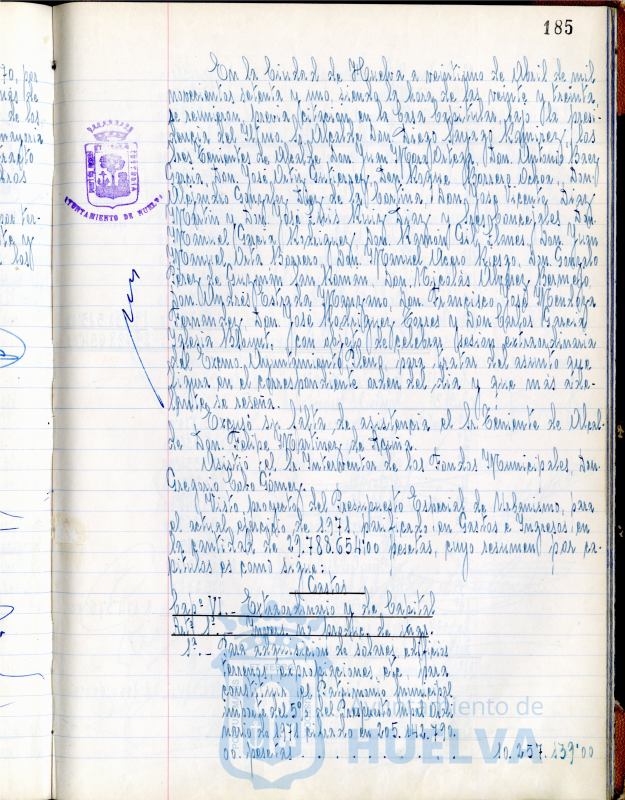 185
En la Ciudad de Huelva a veintiuno de Abril de mil
novecientos setenta y uno, siendo la hora de las veinte y treinta,
se reunieron, previa citación, en la Casa Capitular, bajo la presi-
dencia del Iltmo. Sr. Alcalde Don Diego Ramírez, los
Sres Tenientes de Alcalde, Don Juan Mora Don Antonio
García, Don José Ortiz Gutiérrez, Don Borrero Ochoa, Don
Alejandro González Díaz de la Don José Vicente
Martín y Don José Luis Ruiz Díaz y Sres Concejales Don
Manuel García Rodríguez, Don Ramón Don Juan
Manuel Borrero, Don Manuel Don Gonzalo
Pérez de Guzmán San Román, Don Nicolás Bermejo,
Don Andrés Estrada Manzano, Don Francisco José Mendoza
Fernández, Don José Rodríguez Torres y Don Carlos
con objeto de celebrar sesión extraordinaria
el Excmo Ayuntamiento Pleno, para tratar del asunto que
figura en el correspondiente orden del día y que más ade-
lante se reseña.
Excusó su falta de asistencia el Sr Teniente de Alcal-
de Don Felipe Martínez de
Asistió el Sr Interventor de los Fondos Municipales, Don
Gregorio Gómez.
Visto proyecto del Presupuesto Especial de Urbanismo, para
el actual ejercicio de 1971, en Gastos e Ingresos en
la cantidad de 29.788.654'00 pesetas, cuyo resumen por ca-
pítulos es como sigue:
Gastos
Capº VI.- Extraordinario y de Capital
Artº 1º.-
1º.- Para adquisición de solares, edificios
terrenos, expropiaciones, etc, para
constituir el Patrimonio Municipal
importe del 5% del Presupuesto Ordi-
nario de 1971 cifrado en 205.142.790.
00 pesetas . . . . . . . . 10.257.139'00
AYUNTAMIENTO DE HUELVA
Ayuntamiento de
HUELVA